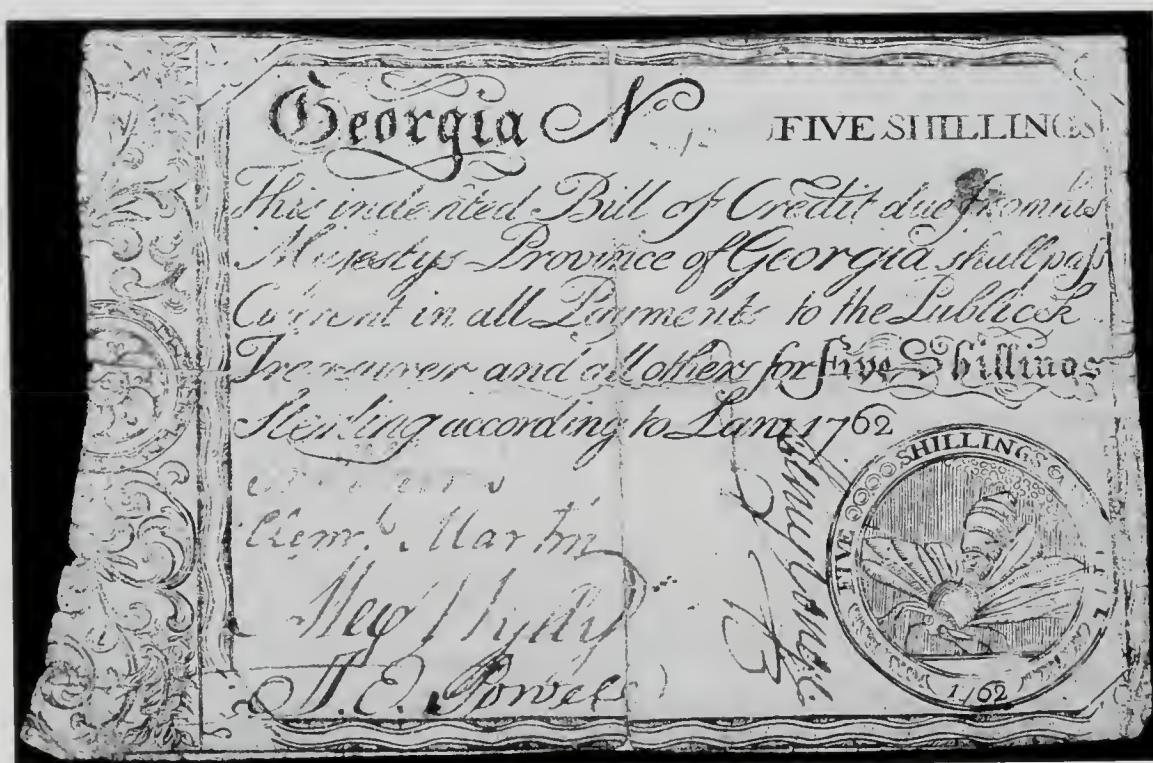 Georgia No FIVE SHILLINGS
This indented Bill of Credit due from his
Majestys Province of Georgia shall pass
Current in all Payments to the Publick
Treasurer and all others for Five Shillings
Sterling according to Law 1762
Clemt. Martin
Alexr Wylly
J. E. Powell
Henry Yonge
FIVE SHILLINGS
1762